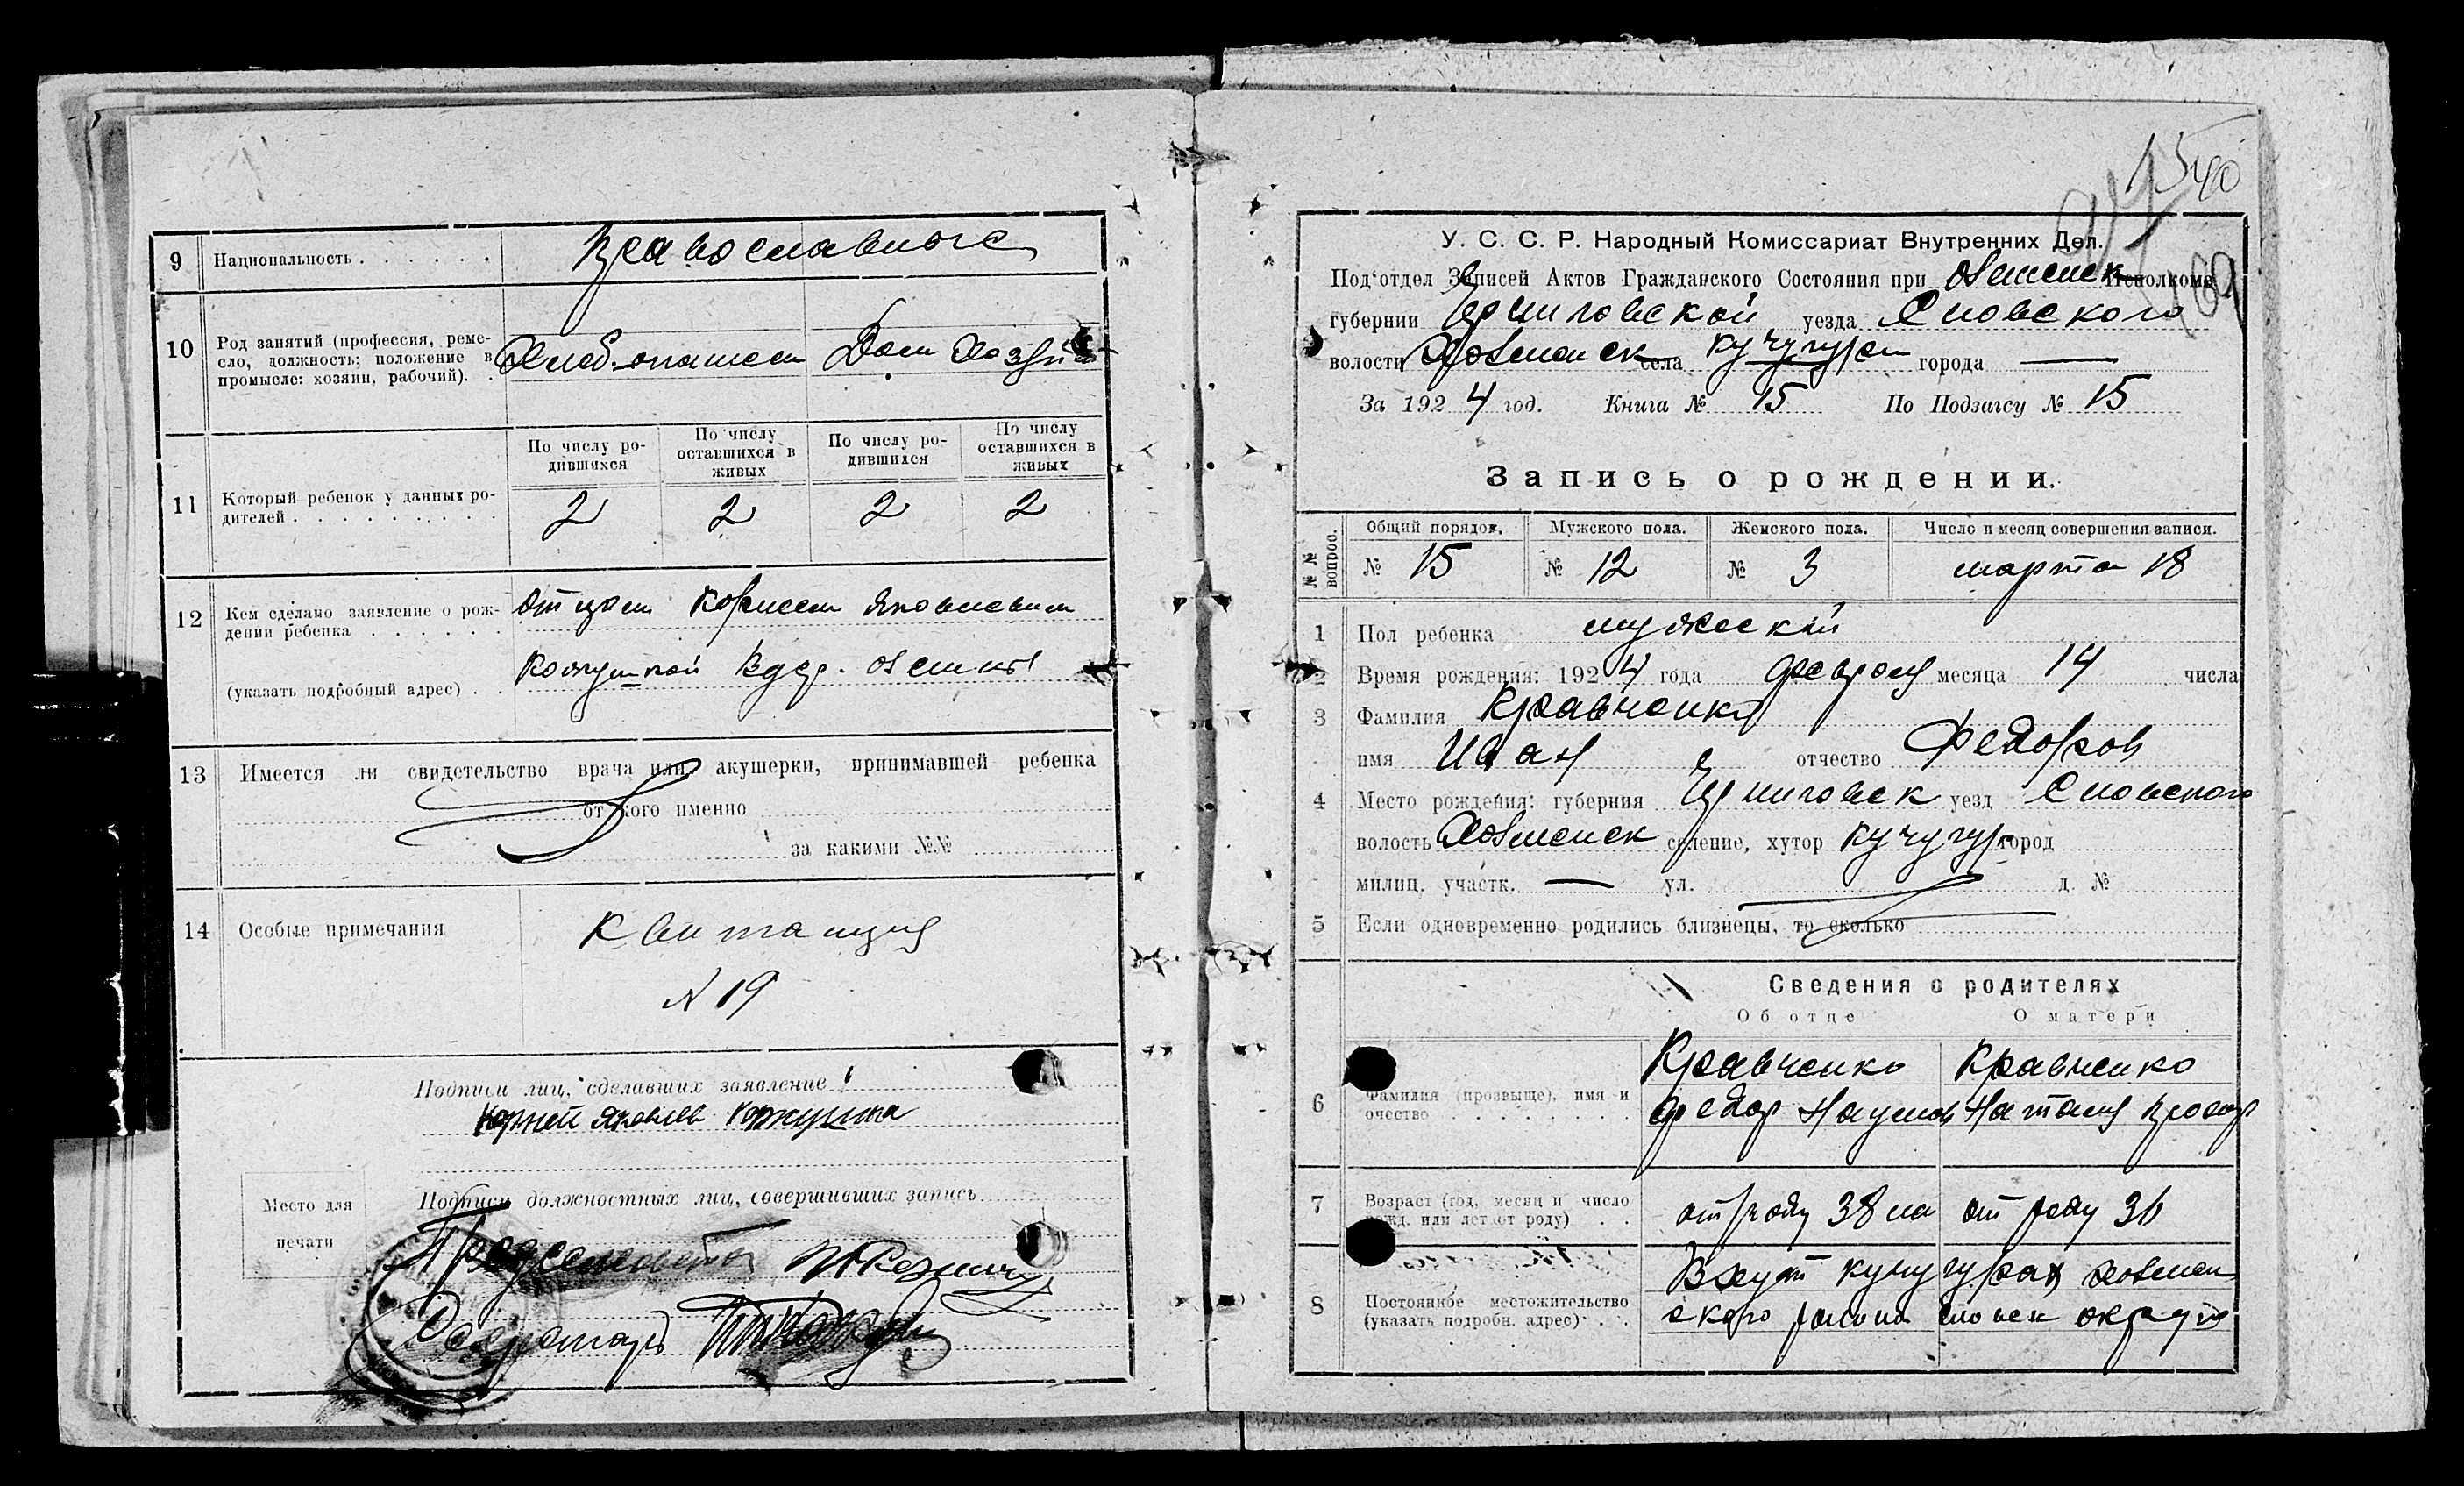 9 Национальность . . . . . . Православное
10 Род занятий (профессия, реме-
сло, должность; положение в
промысле: хозяин, рабочий). .
Хлебопашец Дом Хозяйка
11 Который ребенок у данных ро-
дителей . . . . . . . . .
По числу ро-
дившихся
По числу
оставшихся в
живых
По числу ро-
дившихся
По числу
оставшихся в
живых
2 2 2 2
12 Кем сделано заявление о рож-
дении ребенка . . . . . .
отцом Корнеем Яковлевым
(указать подробный адрес) . .
13 Имеется ли свидетельство врача или акушерки, принимавшей ребенка
от кого именно
за какими №№
14 Особые примечания Квитанция
N 19
Подписи лиц, сделавших заявление
Корней Яковлев
Подписи должностных лиц, совершивших запись
Место для
печати
Председатель
Секретарь
1540
169
У. С. С. Р. Народный Комиссариат Внутренних Дел.
Под'отдел Записей Актов Гражданского Состояния при Исполкоме
губернии Черниговской уезда Сновского
волости села Кучугуры города —
За 1924 год. Книга № 15 По Подзагсу № 15
Запись о рождении.
№№ вопрос.
Общий порядок. Мужского пола. Женского пола. Число и месяц совершения записи.
№ 15 № 12 № 3 марта 18
1 Пол ребенка мужеский
2 Время рождения: 1924 года февраля месяца 14 числа
3 Фамилия Кравченко
имя Иван отчество Федоров
4 Место рождения: губерния Черниговск уезд Сновского
волость Хобменск селение, хутор Кучугур город
милиц. участк. — ул. д. №
5 Если одновременно родились близнецы, то сколько
Сведения о родителях
Об отце О матери
6 Фамилия (прозвыще), имя и
очество . . . . . . . .
Кравченко Кравченко
Федор Наумов Наталия Прохор
7 Возраст (год, месяц и число
рожд. или лет от роду) . .
от роду 38 от роду 36
8 Постоянное местожительство
(указать подробн. адрес) . .
В хут Кучугурах Хобмен
ского района сновск округа